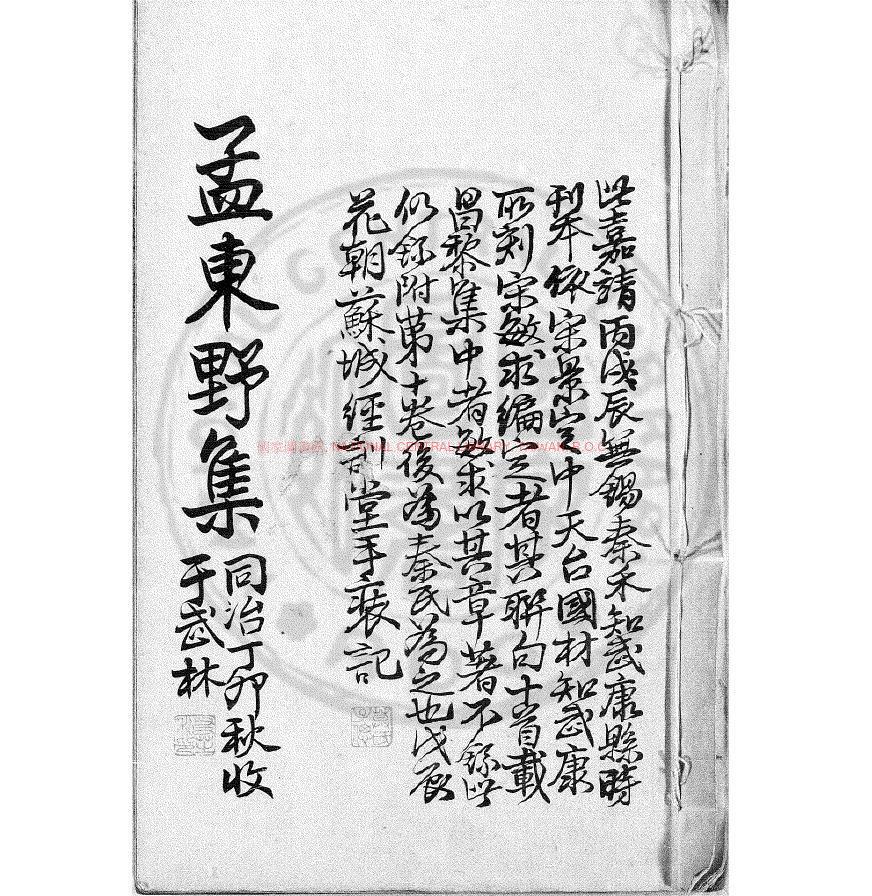 此嘉靖丙戌辰無錫秦禾知武康縣時
刊本依宋景定中天台國材知武康
所刻宋敏求編定者其聯句十首載
昌黎集中者敏求以其章著不錄此
仍錄附第十卷後為秦氏為之也戊辰
花朝蘇城經訓堂手裝記
孟東野集
同治丁卯秋收
于武林
國家圖書館, NATIONAL CENTRAL LIBRARY, TAIWAN R.O.C